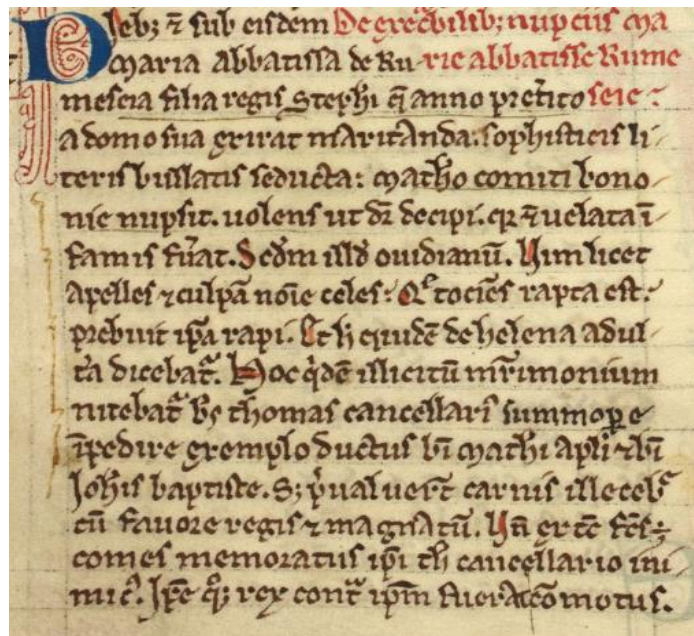 Dieb; ⁊ sub eisdem De execbilib; nupciis ma
maria abbatissa de Ru- rie abbatisse Rume
mescia filia regis Stephi q̄ anno p̄terito seie:
a domo sua exirat maritanda. sophisticis li-
teris bullatis seducta: matho comiti bono-
nie nupsit. uolens ut dr̄ decipi. q̄ ⁊ uelata ī
famis fu̓at. Scdm illd̓ ouidianū. Vim licet
apelles ⁊ culpā noīe celes: Q̄ tociēs rapta est:
prebuit ip̄a rapi. Et h̓ quidē de helena adul-
ta dicebat̓. Hoc q̓dē illicitū mr̄imonium
nitebat̓ bs̄ thomas cancellari̓ summope
īpedire exemplo ductus bī mathi apli ⁊ bī
Johis baptiste. S; p̓ualuert̄ carnis illeceb̓
cū fauore regis ⁊ magnatū. Vn̄ ex tc̄ fc̄s ÷
comes memoratus ip̄i th̓ cancellario ini
mic̓. Ip̄e q̓; rex cont̓ ip̄m fuerat cōmotus.